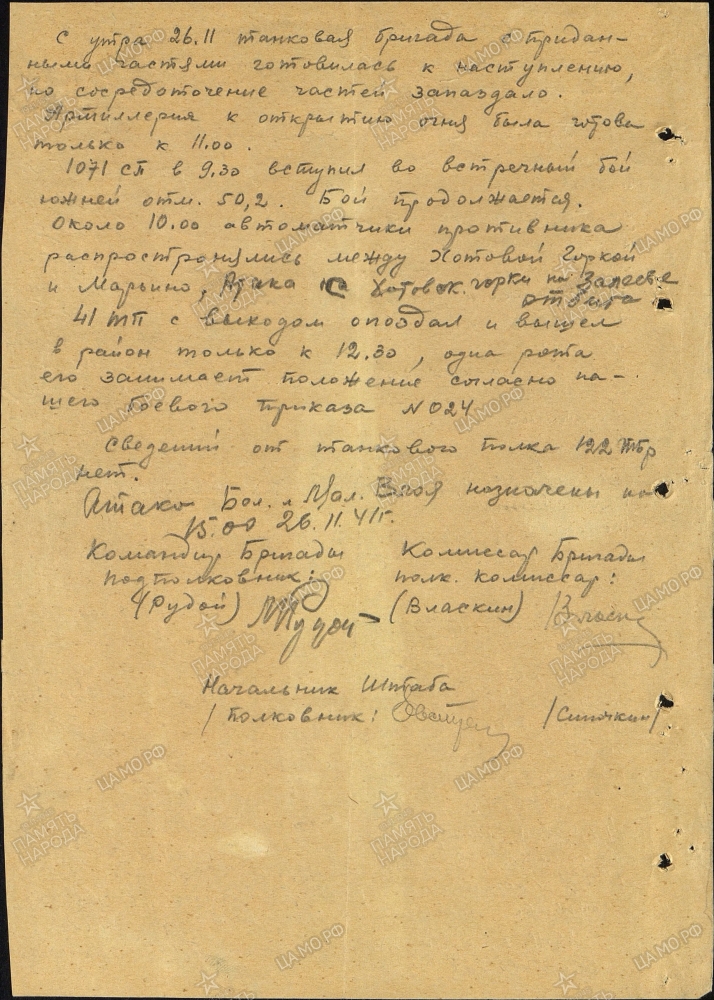 С утра 26.11 танковая бригада с придан-
ными частями готовилась к наступлению,
но сосредоточение частей запаздало.
Артиллерия к открытию огня была готова
только к 11.00.
1071 сп в 9.30 вступил во встречный бой
южней отм. 50,2. Бой продолжается.
Около 10.00 автоматчики противника
распространялись между Хотовой Горкой
и Марьино, Атака Хотовск. горки на Залесье
отбита
41 тп с выходом опоздал и вышел
в район только к 12.30, одна рота
его занимает положение согласно на-
шего боевого приказа №024
Сведений от танкового полка 122 тбр
нет.
Атака Бол. и Мал. назначены на
15.00 26.11.41г.
Командир Бригады Комиссар Бригады
подполковник: полк. комиссар:
(Рудой) (Власкин)
Начальник Штаба
/полковник:
ПАМЯТЬ НАРОДА
ЦАМО.РФ